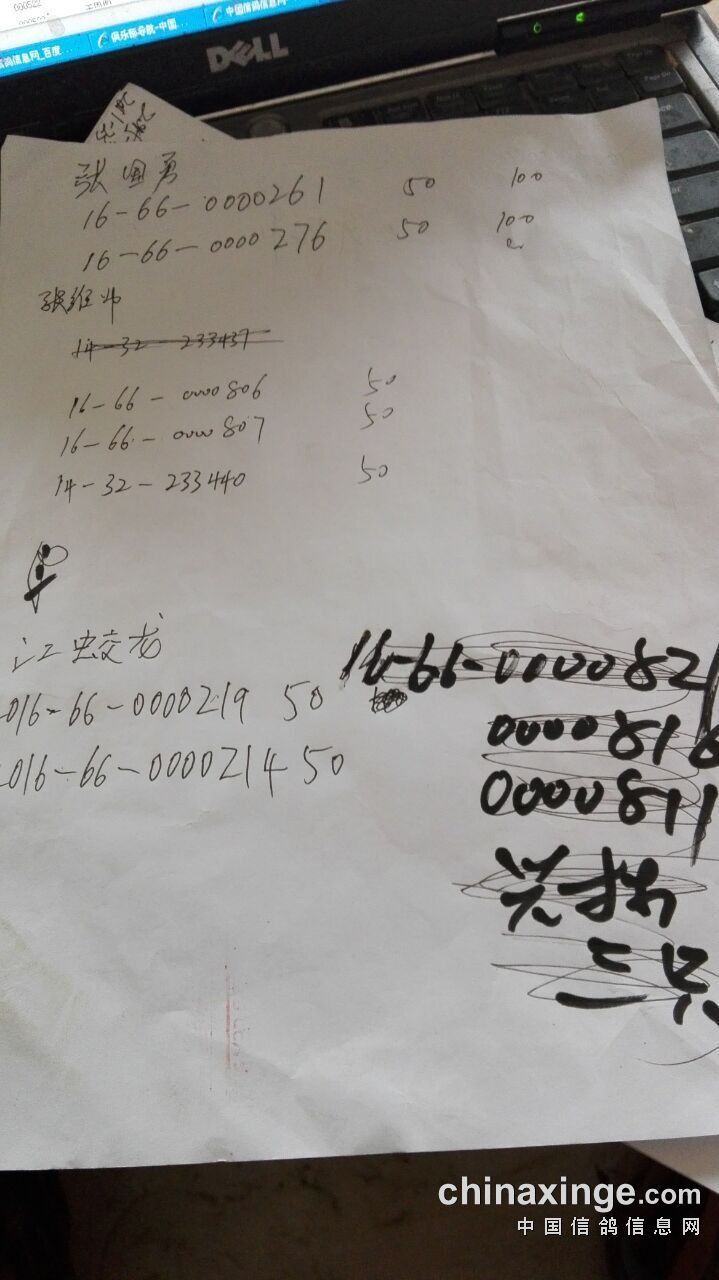 000522
俱乐部导航-中国...
中国信鸽信息网...
鸽信息网_百度...
DELL
张国勇
16-66-0000261 50 100
16-66-0000276 50 100
张维
14-32-233437
16-66-0000806 50
16-66-0000807 50
14-32-233440 50
江蛟龙
016-66-0000219 50
016-66-0000214 50
16-66-0000821
0000818
0000811
三只
chinaxinge.com
中国信鸽信息网